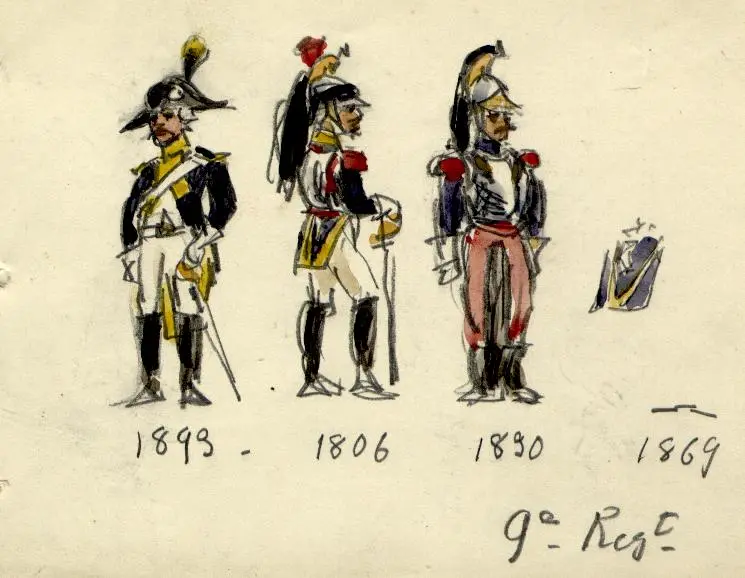 1893 - 1806 1830 1869
9e Regt